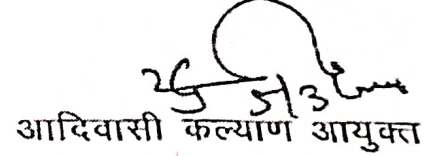 आदिवासी कल्याण आयुक्त